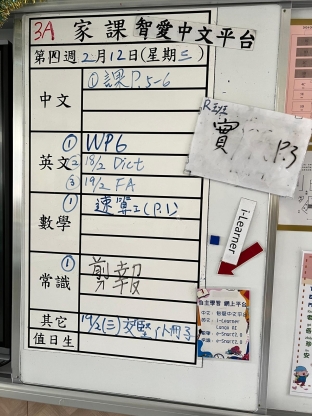 3A 家課 智愛中文平台
第四週2月12日(星期三)
中文
①課P.5-6
英文
① WP6
② 18/2 Dict
③ 19/2 FA
數學
① 速算工(P.1)
常識
① 剪報
其它
19/2(三)交堅小冊子
值日生
R班
實 P.3
i-Learner
自主學習 網上平台